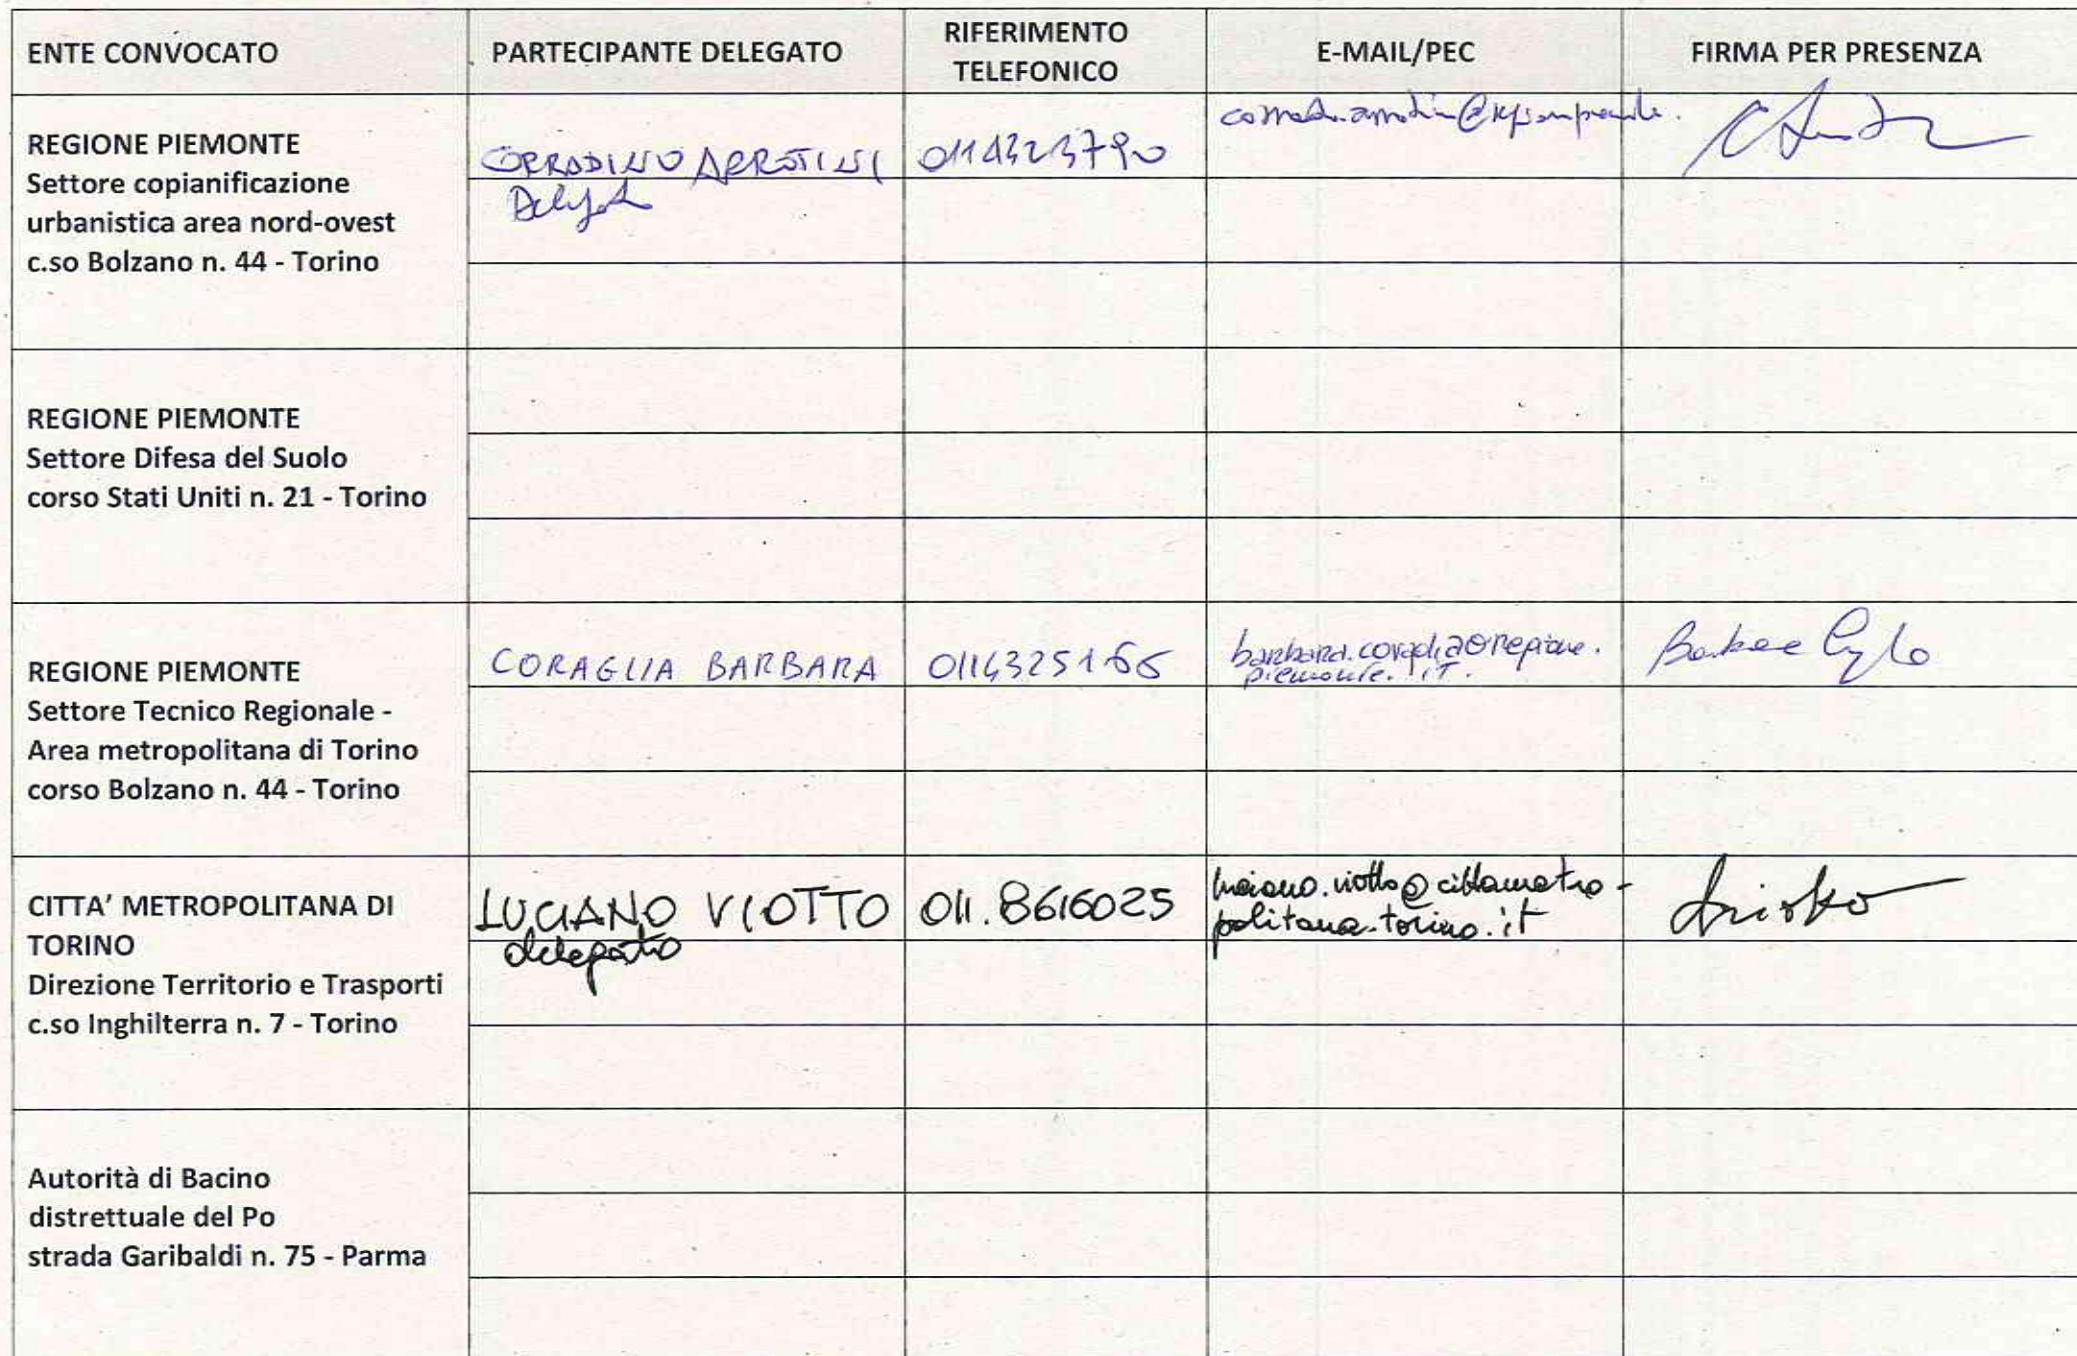 ENTE CONVOCATO
PARTECIPANTE DELEGATO
RIFERIMENTO
TELEFONICO
E-MAIL/PEC
FIRMA PER PRESENZA
REGIONE PIEMONTE
Settore copianificazione
urbanistica area nord-ovest
c.so Bolzano n. 44 - Torino
ARROTINI
0114323790
REGIONE PIEMONTE
Settore Difesa del Suolo
corso Stati Uniti n. 21 - Torino
REGIONE PIEMONTE
Settore Tecnico Regionale -
Area metropolitana di Torino
corso Bolzano n. 44 - Torino
CORAGLIA BARBARA
barbara.coraglia@regione.
piemonte.it.
CITTA' METROPOLITANA DI
TORINO
Direzione Territorio e Trasporti
c.so Inghilterra n. 7 - Torino
LUCIANO VIOTTO
delegato
011.8616025
luciano.viotto@cittametro-
politana.torino.it
Autorità di Bacino
distrettuale del Po
strada Garibaldi n. 75 - Parma